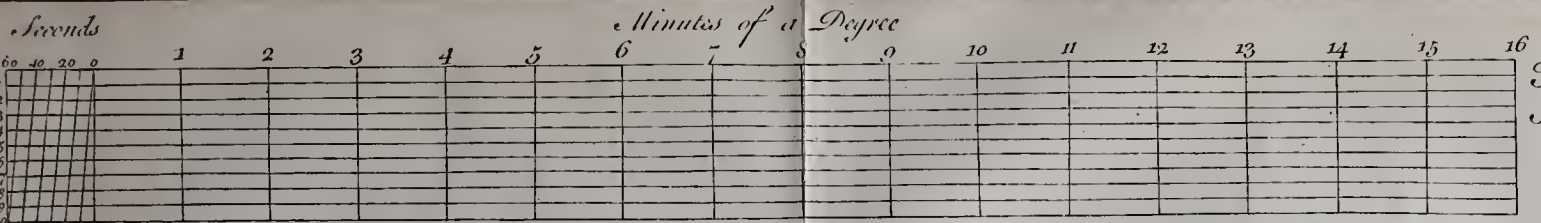 Seconds Minutes of a Degree
60 40 20 0 1 2 3 4 5 6 7 8 9 10 11 12 13 14 15 16